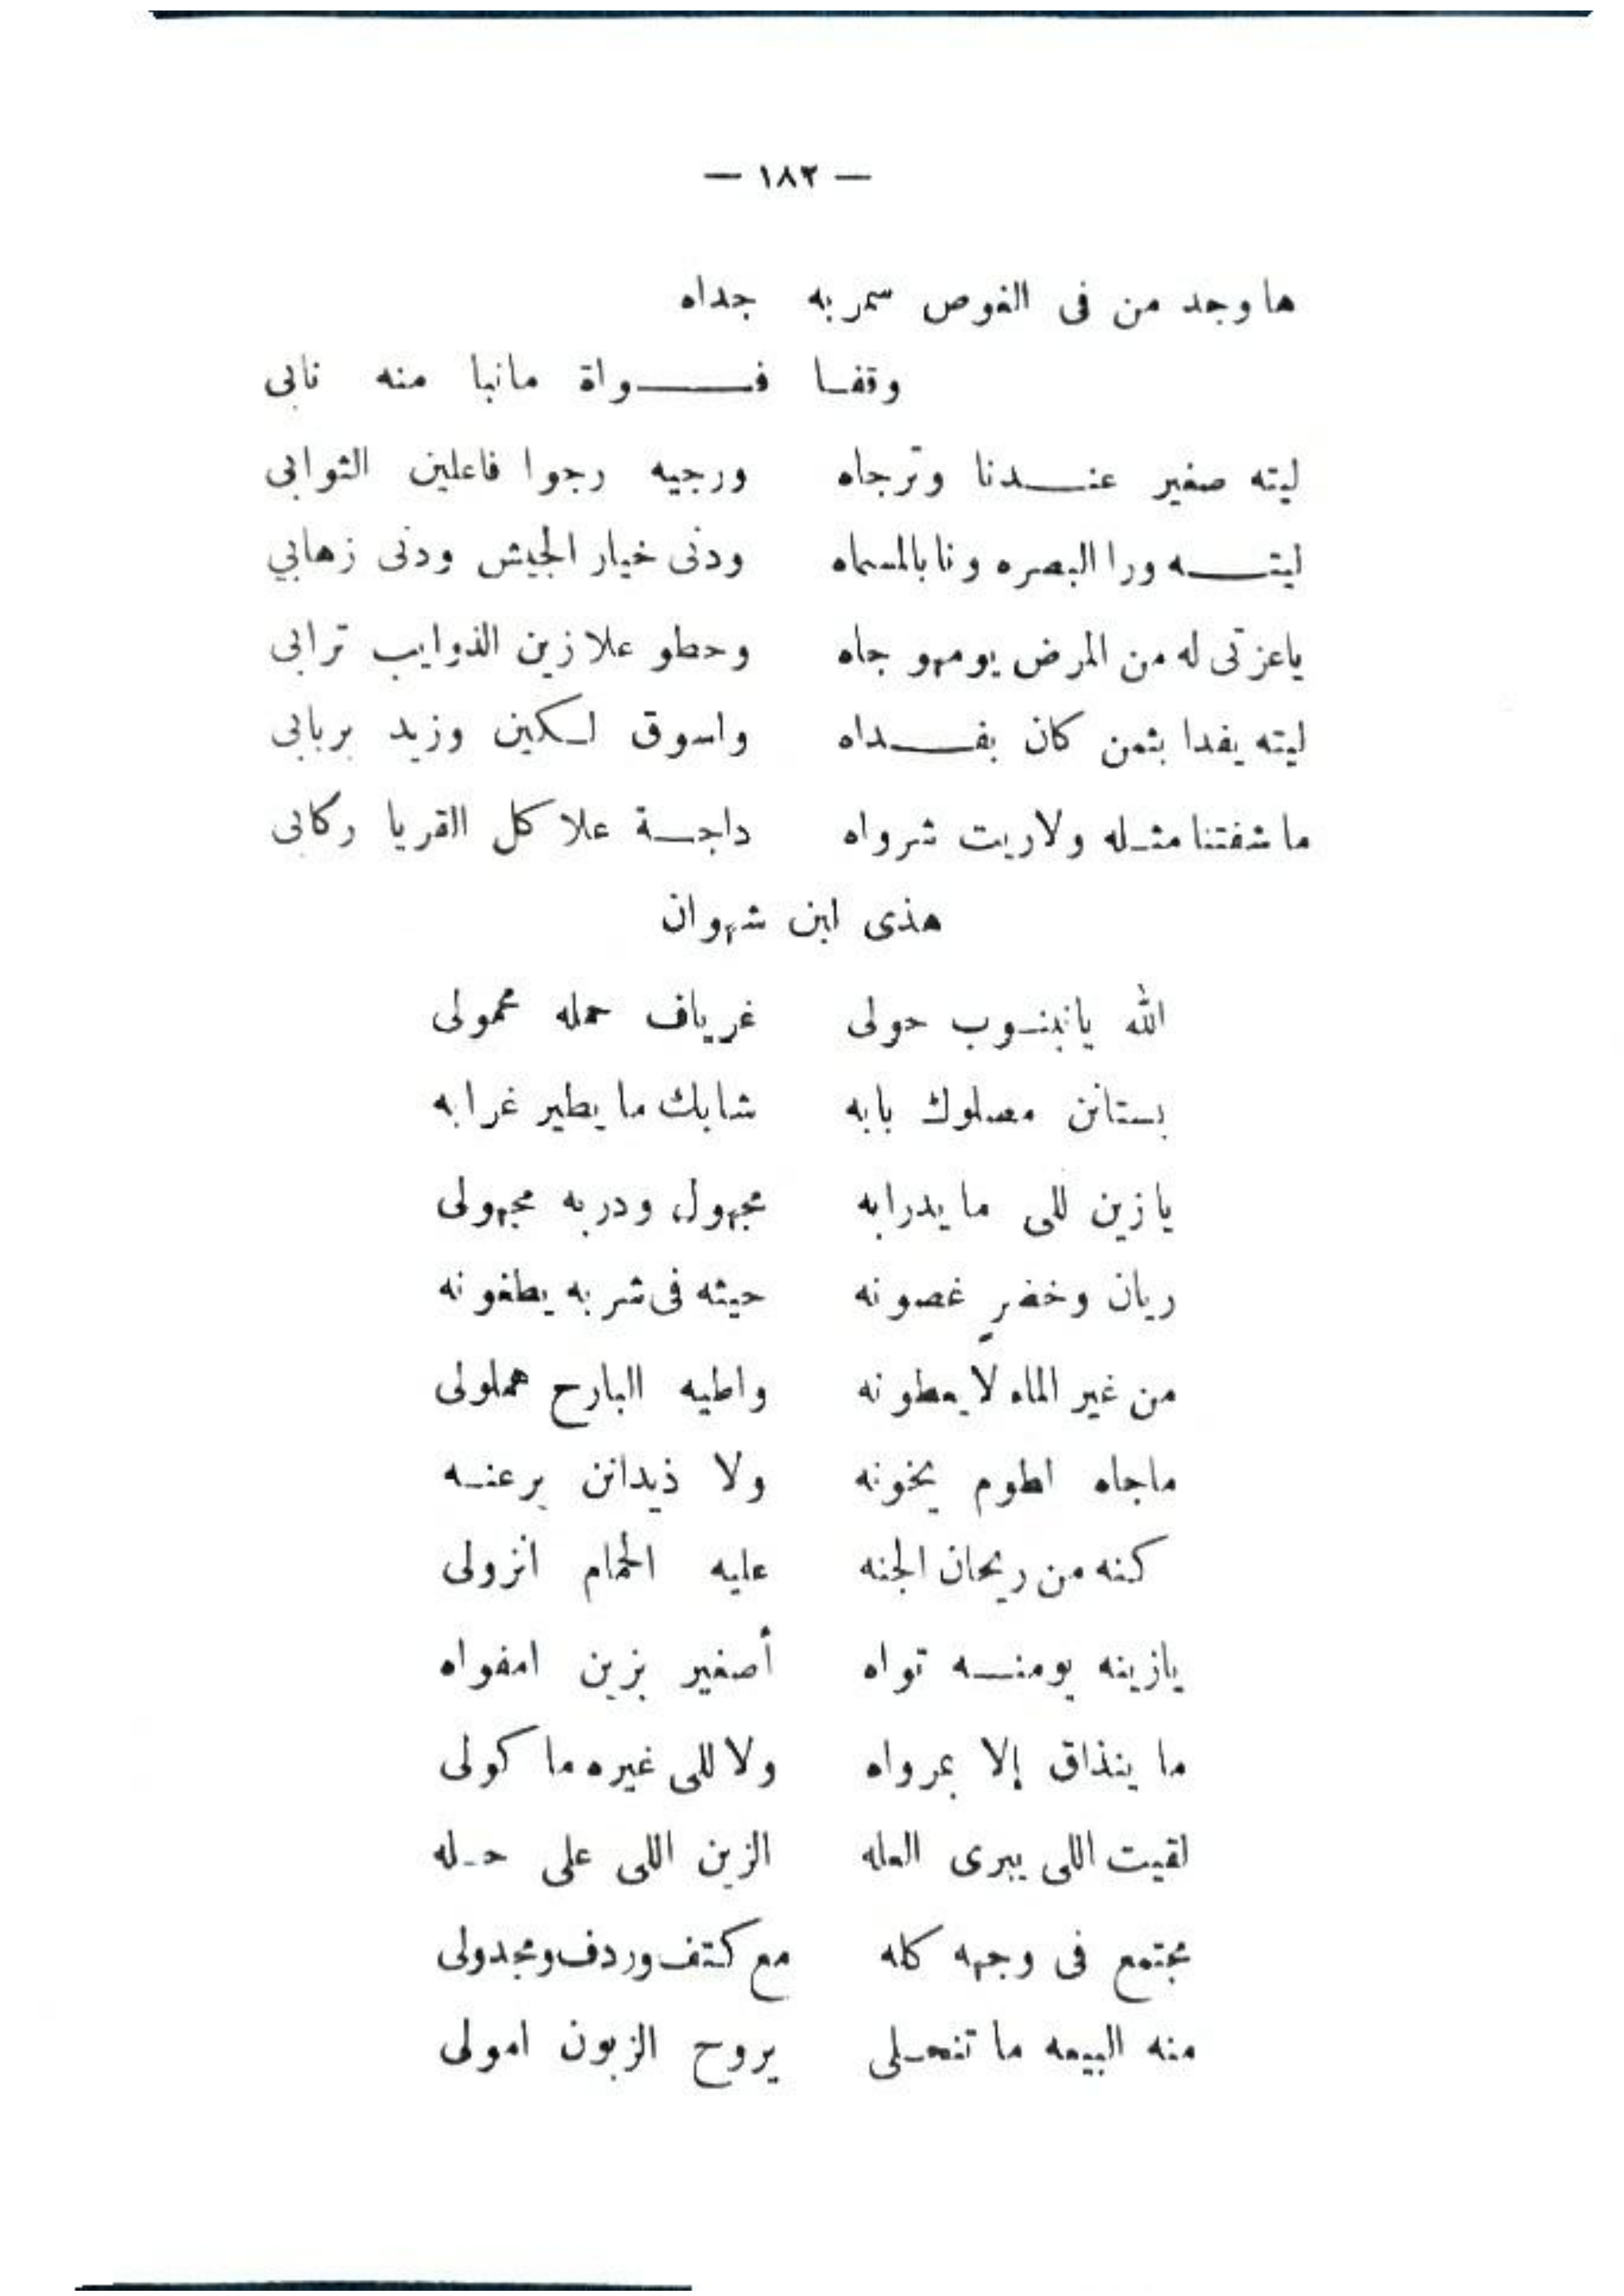 — ١٨٢ —
ها وجد من فى الغوص سمر به جداه
وقفا فواة مانبا منه نابى
ليته صغير عندنا وترجاه ورجيه رجوا فاعلين الثوابى
ليته ورا البصره ونا بالمسماه ودنى خيار الجيش ودنى زهابي
ياعزتى له من المرض يومهو جاه وحطو علا زين الذوايب ترابى
ليته يفدا بثمن كان بفداه واسوق لكين وزيد بربابى
ما شفتنا مثله ولاريت شرواه داجة علا كل القريا ركابى
هذى ابن شهوان
الله يانبنوب حولى غرياف حمله محمولى
بستانن مصلوك بابه شابك ما يطير غرابه
يا زين للى ما يدرابه مجهول ودربه مجهولى
ريان وخضرٍ غصونه حيثه فى شربه يطغونه
من غير الماء لا يعطونه واطيه البارح هملولى
ماجاه اطوم يخونه ولا ذيدانن يرعنه
كنه من ريحان الجنه عليه الحمام انزولى
يازينه يومنه تواه أصغير بزين امفواه
ما ينذاق إلا بمرواه ولا للى غيره ما كولى
لقيت اللى يبرى العله الزين اللى على حله
مجتمع فى وجهه كله مع كتف وردف ومجدولى
منه البيعه ما تنحلى يروح الزبون امولى